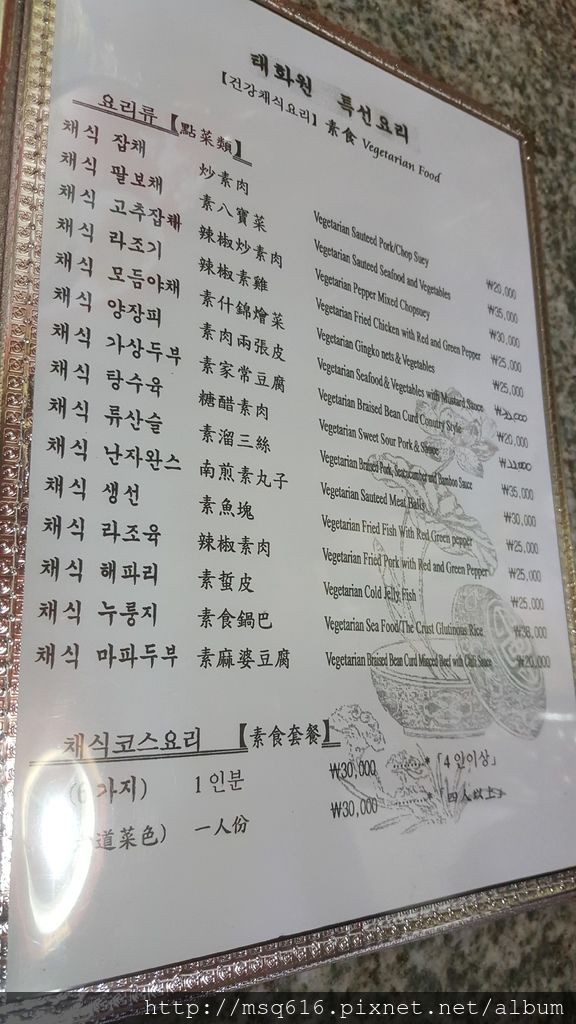 태화원 특선요리
【건강채식요리】 素食 Vegetarian Food
요리류【點菜類】
채식 잡채 炒素肉 Vegetarian Sauteed Pork/Chop Suey ₩20,000
채식 팔보채 素八寶菜 Vegetarian Sauteed Seafood and Vegetables ₩35,000
채식 고추잡채 辣椒炒素肉 Vegetarian Pepper Mixed Chopsuey ₩30,000
채식 라조기 辣椒素雞 Vegetarian Fried Chicken with Red and Green Pepper ₩25,000
채식 모듬야채 素什錦燴菜 Vegetarian Gingko nets & Vegetables ₩25,000
채식 양장피 素肉兩張皮 Vegetarian Seafood & Vegetables with Mustard Sauce
채식 가상두부 素家常豆腐 Vegetarian Braised Bean Curd Conutry Style ₩20,000
채식 탕수육 糖醋素肉 Vegetarian Sweet Sour Pork &
채식 류산슬 素溜三絲 Vegetarian Braised Pork, Seacucumber and Bamboo Sauce ₩35,000
채식 난자완스 南煎素丸子 Vegetarian Sauteed Meat Balls ₩30,000
채식 생선 素魚塊 Vegetarian Fried Fish With Red Green pepper ₩25,000
채식 라조육 辣椒素肉 Vegetarian Fried Pork with Red and Green Pepper ₩25,000
채식 해파리 素蜇皮 Vegetarian Cold Jelly Fish ₩25,000
채식 누룽지 素食鍋巴 Vegetarian Sea Food/The Crust Glutinous Rice ₩38,000
채식 마파두부 素麻婆豆腐 Vegetarian Braised Bean Curd Minced Beef with Chili Sauce ₩20,000
채식코스요리 【素食套餐】
(6 가지) 1 인분 ₩30,000 ........*「4 인이상」
道菜色) 一人份 ₩30,000 ........*「四人以上」
http://msq616.pixnet.net/album